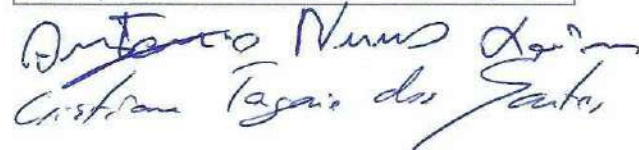 Antonio Nunes
Cristiane dos Santos